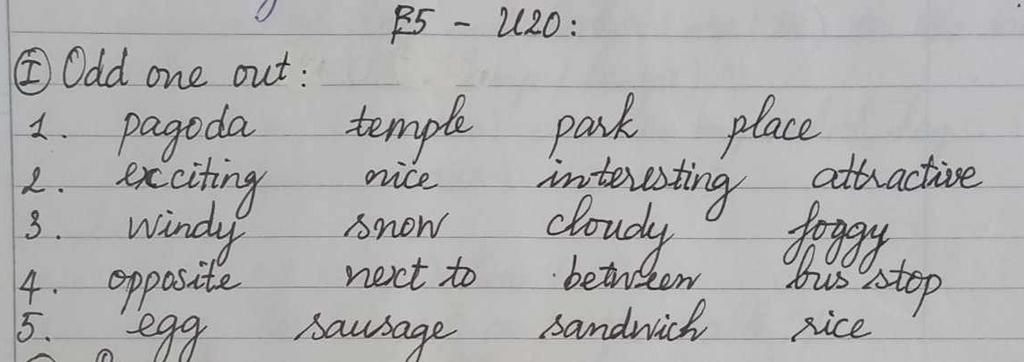 E5 - U20:
I Odd one out:
1. pagoda temple park place
2. exciting nice interesting attractive
3. windy snow cloudy foggy
4. opposite next to between bus stop
5. egg sausage sandwich rice